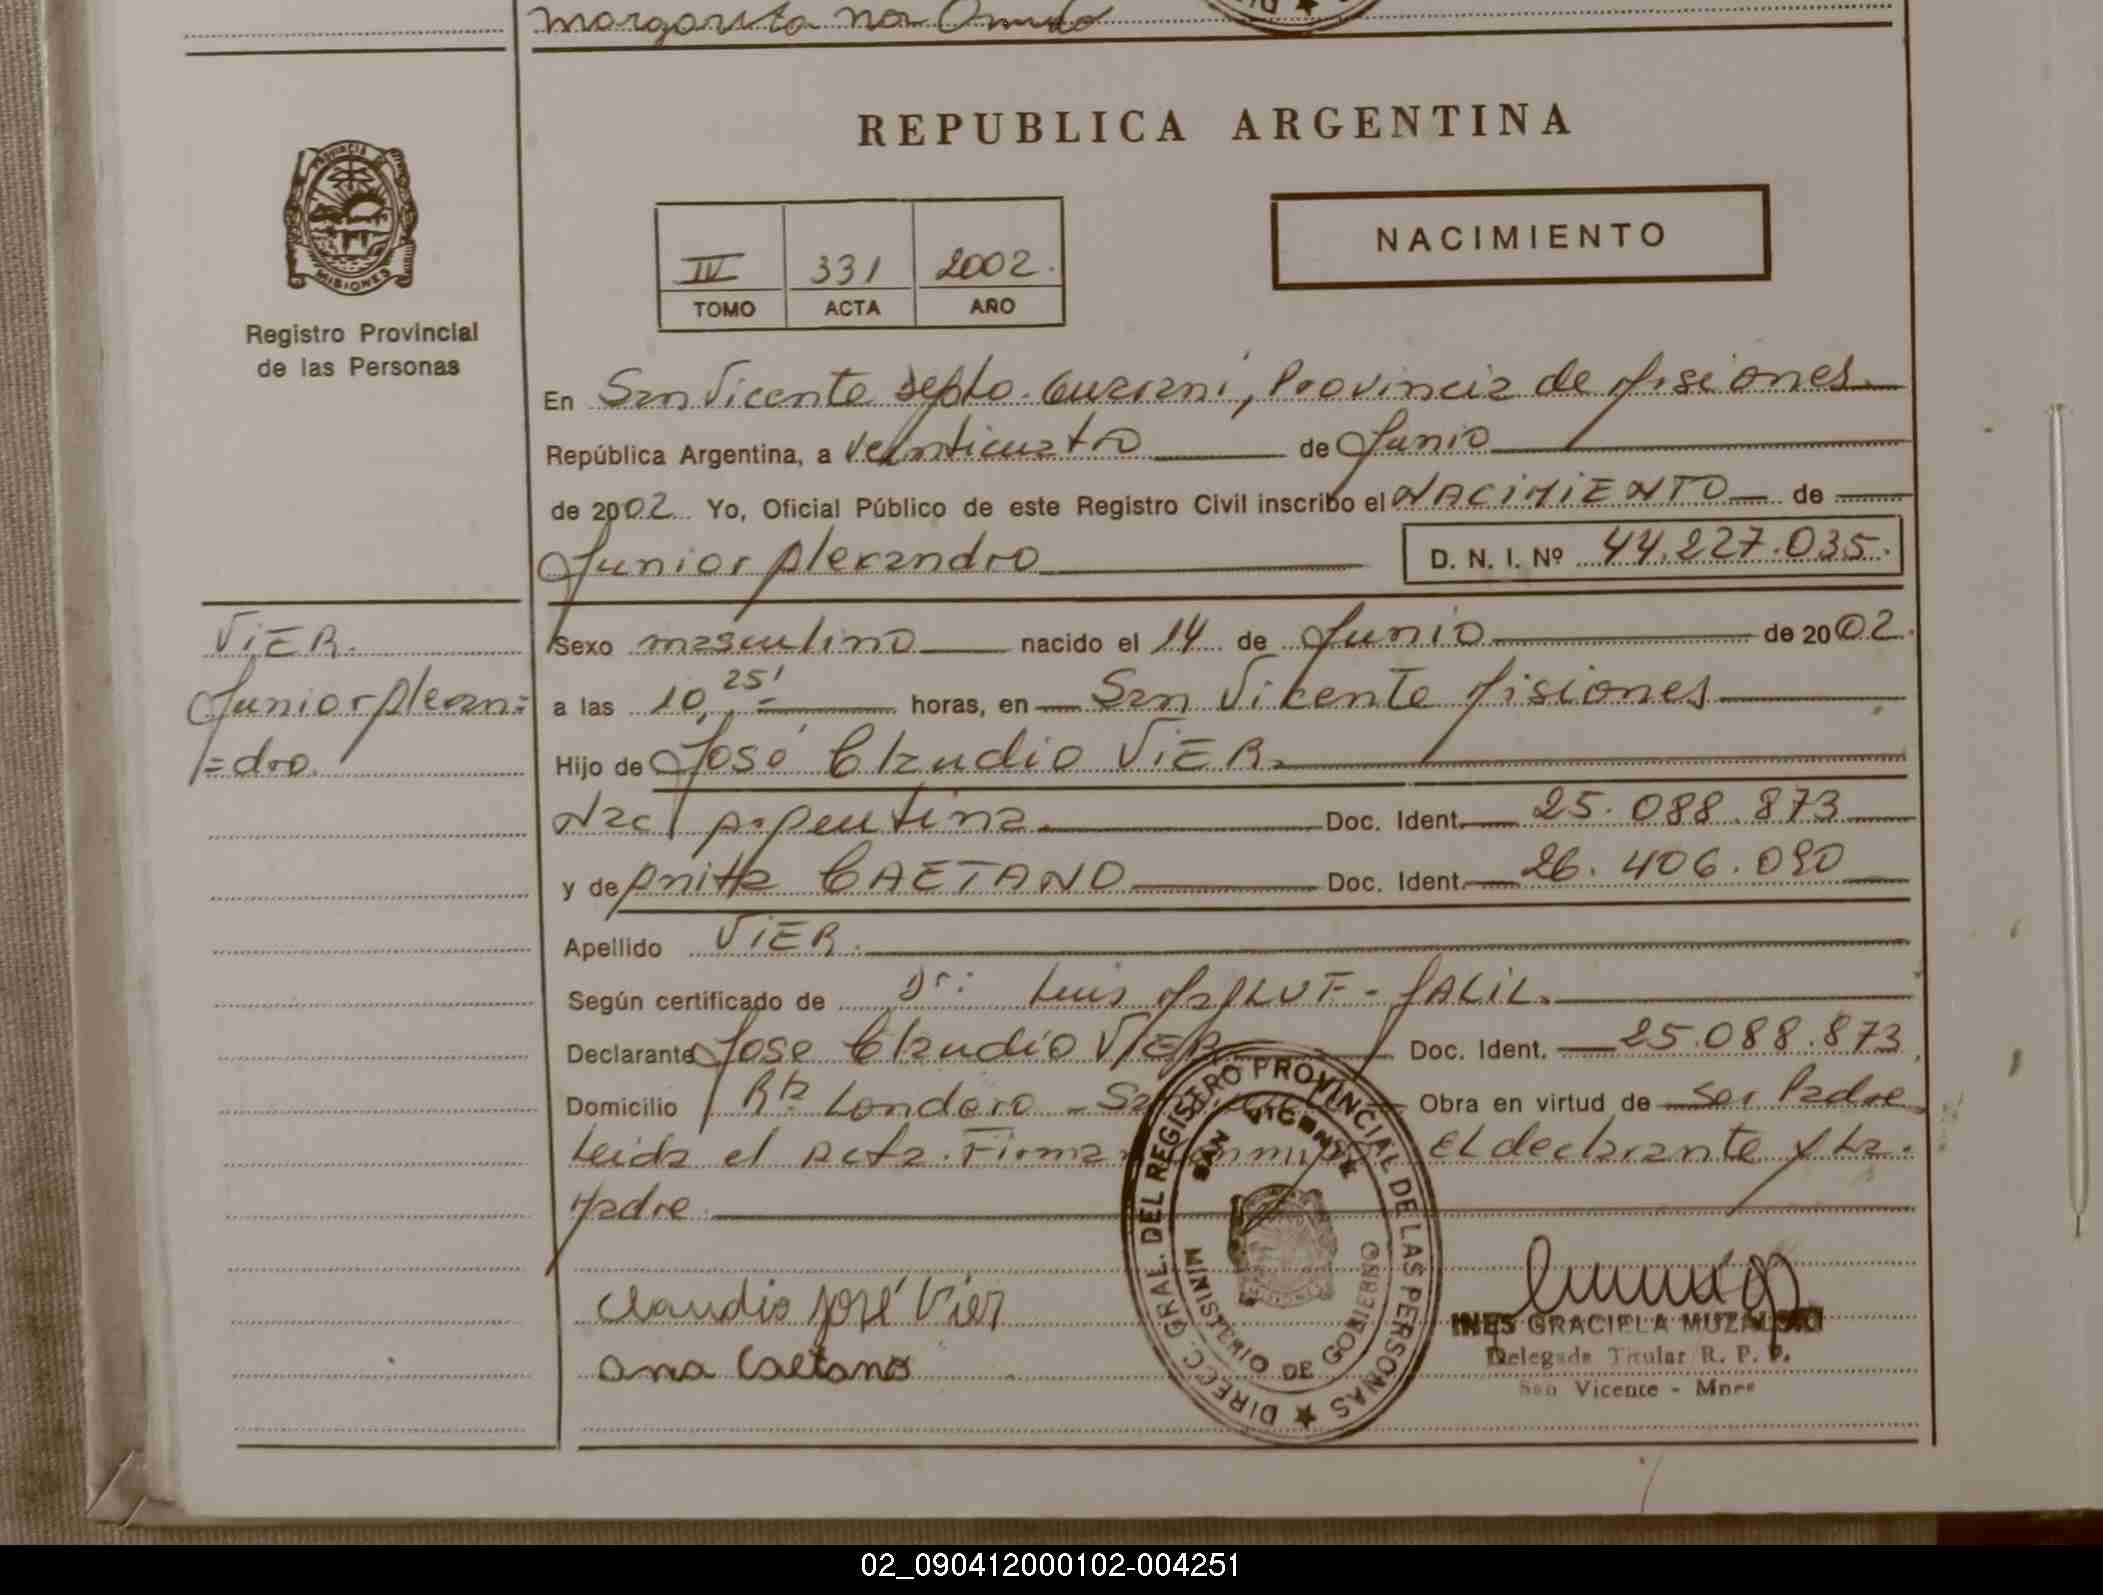 margarita
REPUBLICA ARGENTINA
PROVINCIA DE
MISIONES
Registro Provincial
de las Personas
NACIMIENTO
IV 331 2002.
TOMO ACTA AÑO
En San Vicente Depto. Guaraní, Provincia de Misiones
República Argentina, a veinticuatro de Junio
de 2002 Yo, Oficial Público de este Registro Civil inscribo el NACIMIENTO de
Junior Alexandro D. N. I. Nº 44.227.035.
VIER.
Junior Alexan=
=dro.
Sexo masculino nacido el 14 de Junio de 2002.
a las 10,25' horas, en San Vicente Misiones
Hijo de José Claudio VIER.
Nac. Argentina Doc. Ident. 25.088.873
y de Anita CAETANO Doc. Ident. 26.406.090
Apellido VIER.
Según certificado de Dr: Luis JALIL.
Declarante Jose Claudio VIER Doc. Ident. 25.088.873
Domicilio Londero Obra en virtud de ser Padre
Leida el Acta. Firman el declarante y La.
Madre
Claudio José Vier
ana Caetano
DIREC. GRAL. DEL REGISTRO PROVINCIAL DE LAS PERSONAS
SAN VICENTE
MINISTERIO DE GOBIERNO
INES GRACIELA
Delegada Titular R. P. P.
San Vicente - Mnes
02_090412000102-004251